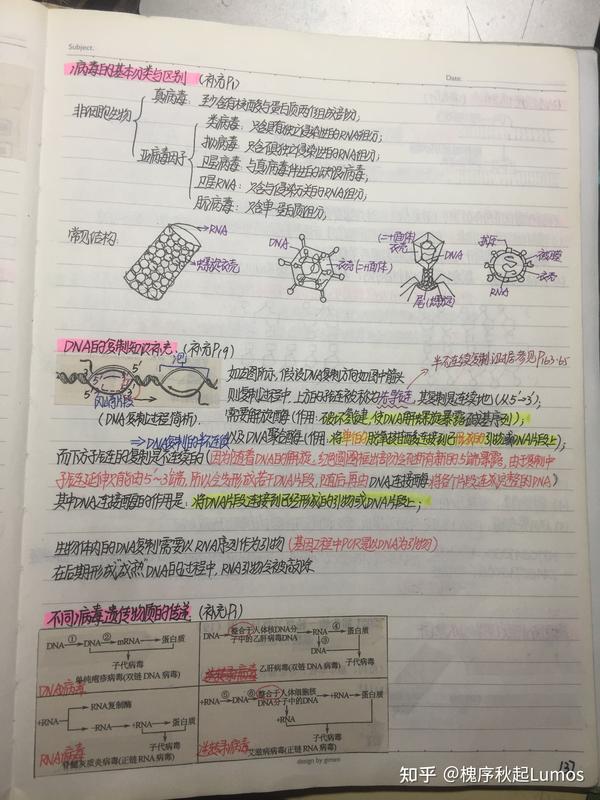 Subject.
Date:
病毒的基本分类与区别 (补充P1)
非细胞生物
真病毒：至少含有核酸与蛋白质两个组成部分;
亚病毒因子
类病毒：只含具有独立侵染性的RNA组分;
拟病毒：只含不具独立侵染性的RNA组分;
卫星病毒：与真病毒伴生的缺陷病毒;
卫星RNA：只含与侵染无关的RNA组分;
朊病毒：只含单一蛋白质组分;
常见结构:
RNA
螺旋衣壳
DNA
衣壳(二十面体)
(二十面体)
衣壳
DNA
尾(螺旋)
RNA
衣壳
DNA的复制知识补充 (补充P19)
半不连续复制证据参见P163-165
如左图所示，假设DNA复制方向如图中箭头
则复制过程中上方的链被称为先导链，其复制是连续地(从5'→3');
冈崎片段
(DNA复制过程简析)
需要解旋酶(作用：破坏氢键，使DNA解体螺旋暴露出碱基序列);
⇒DNA复制的半不连续
以及DNA聚合酶(作用：将单个的脱氧核苷酸连接到已形成的引物或DNA片段上);
其中DNA连接酶的作用是：将DNA片段连接到已经形成的引物或DNA片段上;
生物体内的DNA复制需要以RNA序列作为引物(基因工程中PCR是以DNA为引物)
在后期形成"成熟"DNA的过程中，RNA引物会被切除
不同病毒遗传物质的传递 (补充P1)
DNA ① DNA ② mRNA 蛋白质
子代病毒
单纯疱疹病毒(双链DNA病毒)
DNA病毒
DNA 整合于人体核DNA分子中的乙肝病毒DNA RNA ④ 蛋白质
③
DNA
子代病毒
逆转录病毒 乙肝病毒(双链DNA病毒)
+RNA
RNA复制酶
-RNA +RNA 蛋白质
子代病毒
RNA病毒
脊髓灰质炎病毒(正链RNA病毒)
+RNA ⑤ ⑥ 整合于人体细胞核DNA分子中的DNA +RNA 蛋白质
+RNA
子代病毒
逆转录病毒
艾滋病病毒(正链RNA病毒)
design by gimen
137
知乎 @槐序秋起Lumos